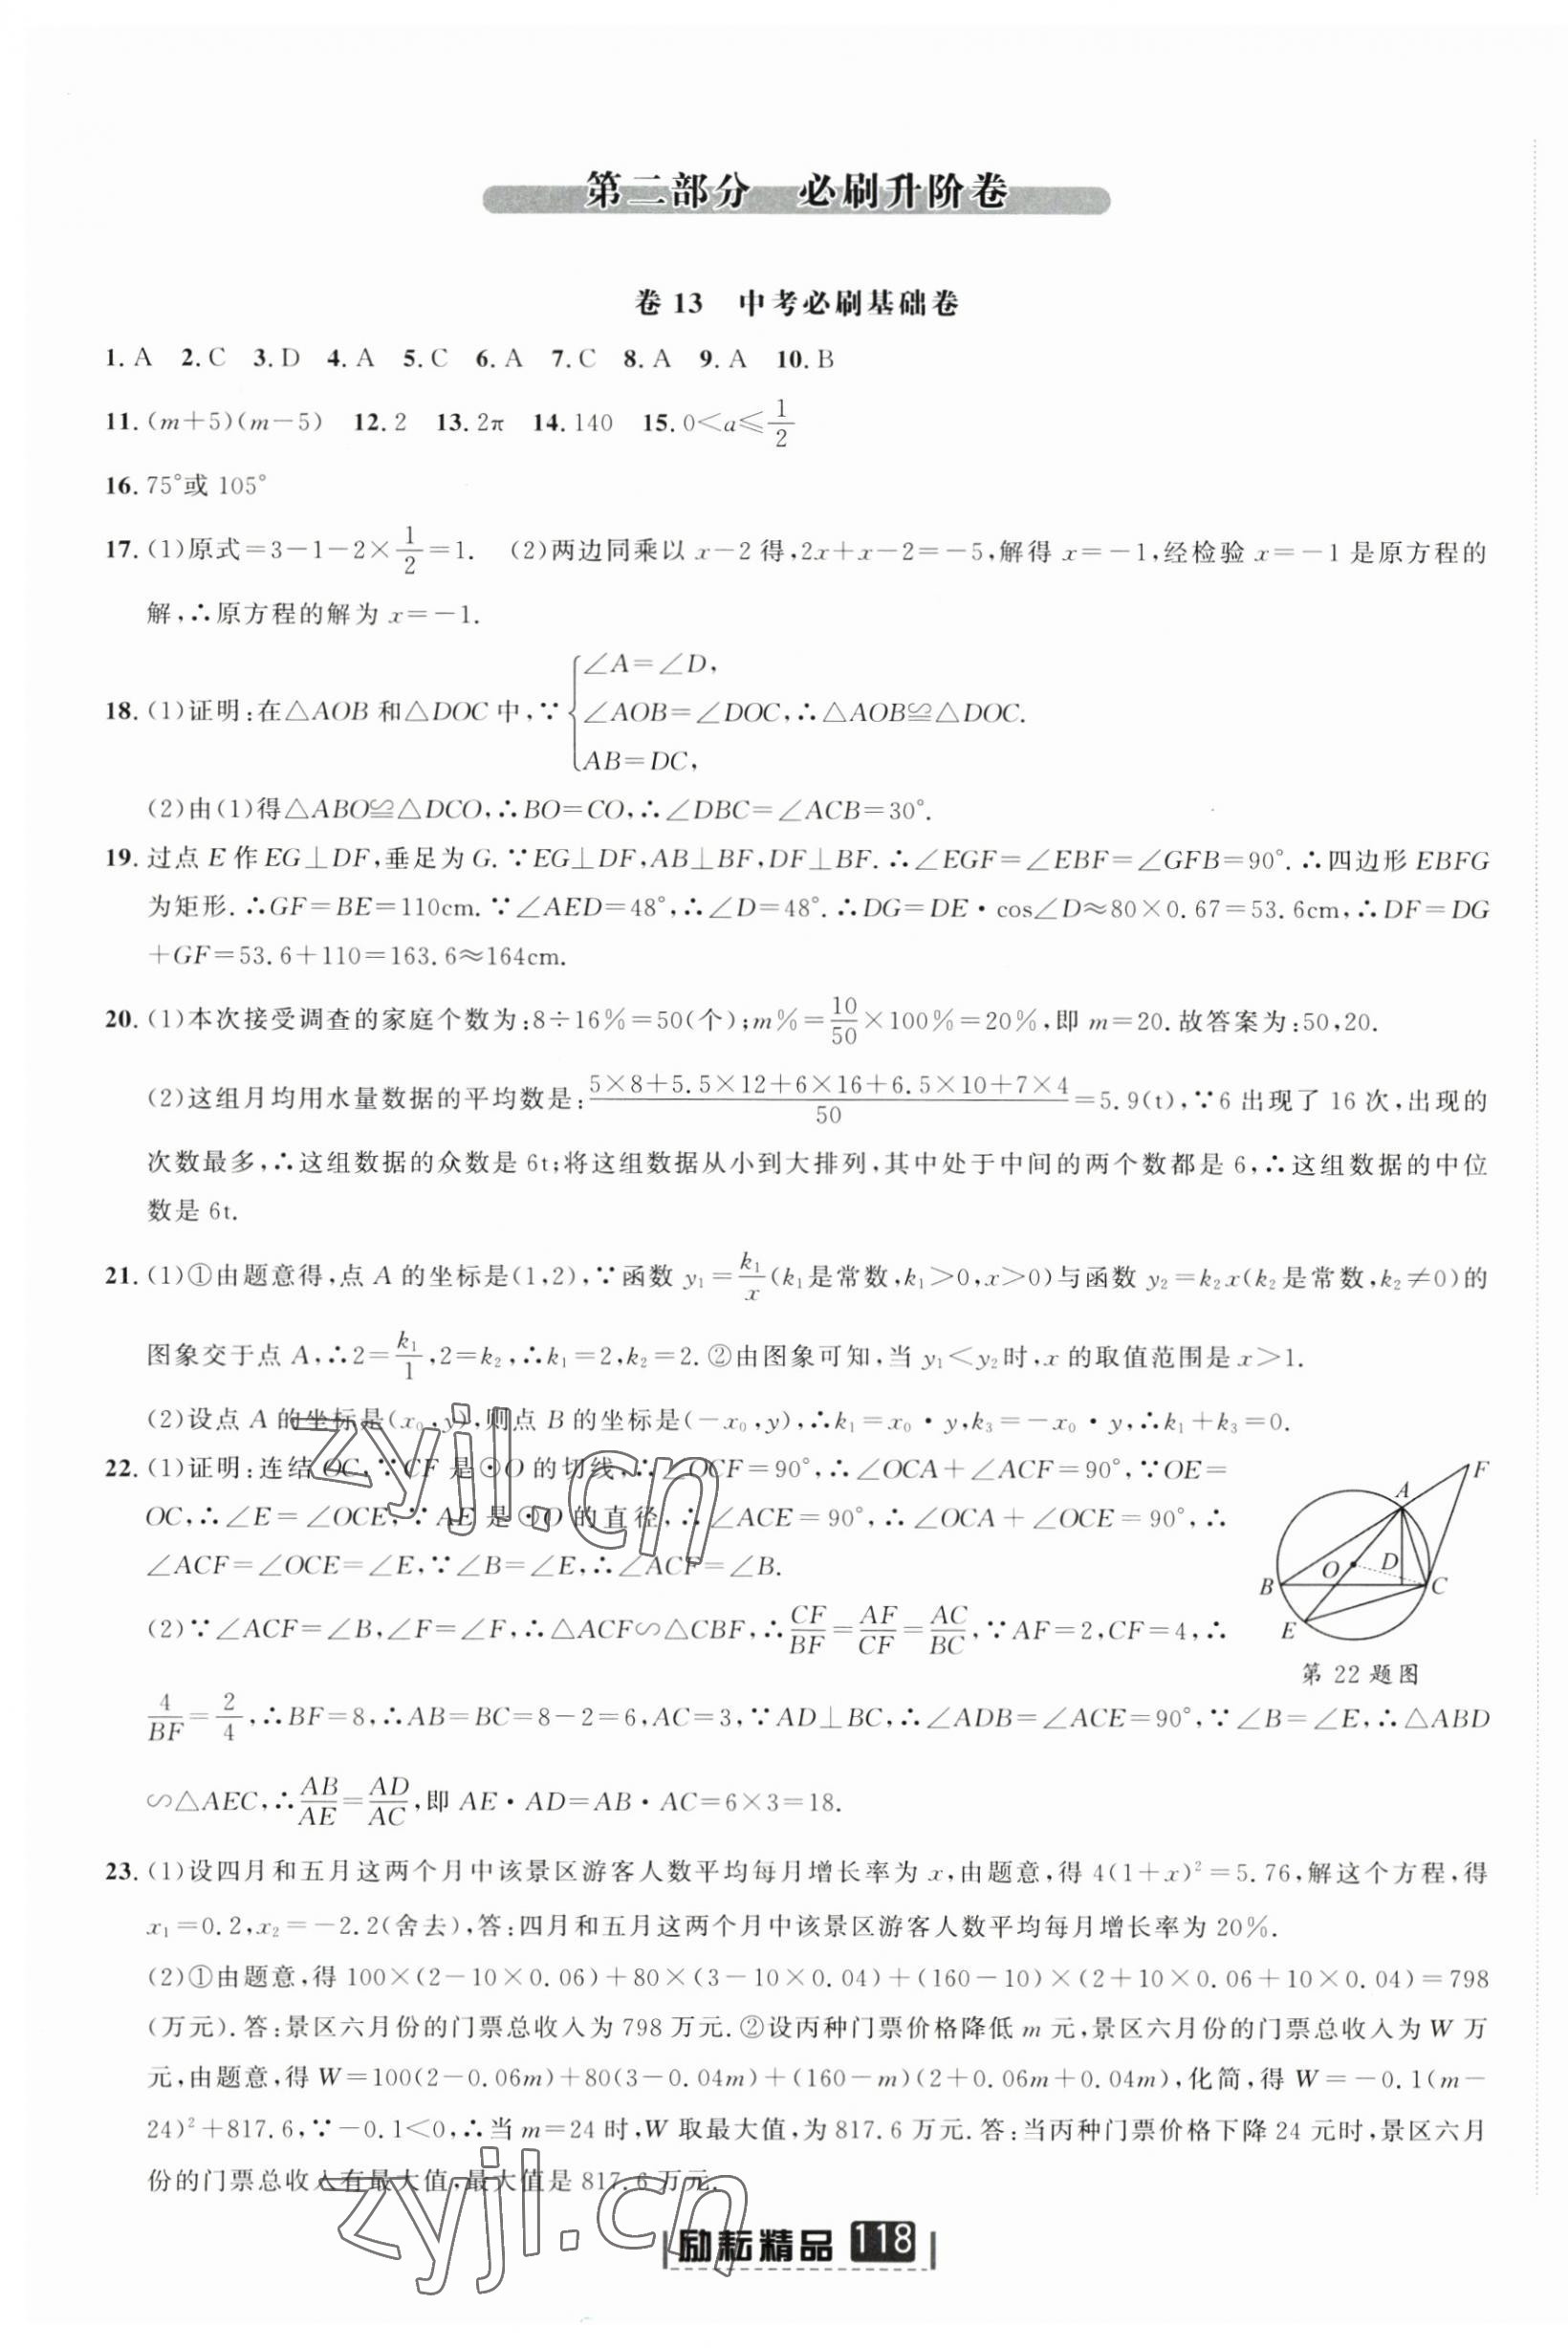 第二部分　必刷升阶卷
卷 13　中考必刷基础卷
1. A　2. C　3. D　4. A　5. C　6. A　7. C　8. A　9. A　10. B
11. (m+5)(m-5)　12. 2　13. 2π　14. 140　15. 0<a≤1/2
16. 75°或 105°
17. (1)原式=3-1-2×1/2=1.　(2)两边同乘以 x-2得,2x+x-2=-5,解得 x=-1,经检验 x=-1 是原方程的
解,∴原方程的解为 x=-1.
18. (1)证明:在△AOB 和△DOC 中,∵{∠A=∠D, ∠AOB=∠DOC, AB=DC, ∴△AOB≌△DOC.
(2)由(1)得△ABO≌△DCO,∴BO=CO,∴∠DBC=∠ACB=30°.
19. 过点 E 作 EG⊥DF,垂足为 G. ∵EG⊥DF,AB⊥BF,DF⊥BF. ∴∠EGF=∠EBF=∠GFB=90°. ∴四边形 EBFG
为矩形. ∴GF=BE=110cm. ∵∠AED=48°,∴∠D=48°. ∴DG=DE·cos∠D≈80×0.67=53.6cm,∴DF=DG
+GF=53.6+110=163.6≈164cm.
20. (1)本次接受调查的家庭个数为:8÷16%=50(个);m%=10/50×100%=20%,即 m=20. 故答案为:50,20.
(2)这组月均用水量数据的平均数是:(5×8+5.5×12+6×16+6.5×10+7×4)/50=5.9(t),∵6 出现了 16 次,出现的
次数最多,∴这组数据的众数是 6t;将这组数据从小到大排列,其中处于中间的两个数都是 6,∴这组数据的中位
数是 6t.
21. (1)①由题意得,点 A 的坐标是(1,2),∵函数 y₁=k₁/x(k₁是常数,k₁>0,x>0)与函数 y₂=k₂x(k₂是常数,k₂≠0)的
图象交于点 A,∴2=k₁/1,2=k₂,∴k₁=2,k₂=2. ②由图象可知,当 y₁<y₂时,x 的取值范围是 x>1.
(2)设点 A 的坐标是(x₀,y),则点 B 的坐标是(-x₀,y),∴k₁=x₀·y,k₃=-x₀·y,∴k₁+k₃=0.
22. (1)证明:连结 OC,∵CF 是⊙O 的切线,∴∠OCF=90°,∴∠OCA+∠ACF=90°,∵OE=
OC,∴∠E=∠OCE,∵AE 是⊙O 的直径,∴∠ACE=90°,∴∠OCA+∠OCE=90°,∴
∠ACF=∠OCE=∠E,∵∠B=∠E,∴∠ACF=∠B.
(2)∵∠ACF=∠B,∠F=∠F,∴△ACF∽△CBF,∴CF/BF=AF/CF=AC/BC,∵AF=2,CF=4,∴
4/BF=2/4,∴BF=8,∴AB=BC=8-2=6,AC=3,∵AD⊥BC,∴∠ADB=∠ACE=90°,∵∠B=∠E,∴△ABD
∽△AEC,∴AB/AE=AD/AC,即 AE·AD=AB·AC=6×3=18.
A F O D B C E
第 22 题图
23. (1)设四月和五月这两个月中该景区游客人数平均每月增长率为 x,由题意,得 4(1+x)²=5.76,解这个方程,得
x₁=0.2,x₂=-2.2(舍去),答:四月和五月这两个月中该景区游客人数平均每月增长率为 20%.
(2)①由题意,得 100×(2-10×0.06)+80×(3-10×0.04)+(160-10)×(2+10×0.06+10×0.04)=798
(万元). 答:景区六月份的门票总收入为 798 万元. ②设丙种门票价格降低 m 元,景区六月份的门票总收入为 W 万
元,由题意,得 W=100(2-0.06m)+80(3-0.04m)+(160-m)(2+0.06m+0.04m),化简,得 W=-0.1(m-
24)²+817.6,∵-0.1<0,∴当 m=24 时,W 取最大值,为 817.6 万元. 答:当丙种门票价格下降 24 元时,景区六月
份的门票总收入有最大值,最大值是 817.6 万元.
励耘精品 118
zyjl.cn
zyjl.cn